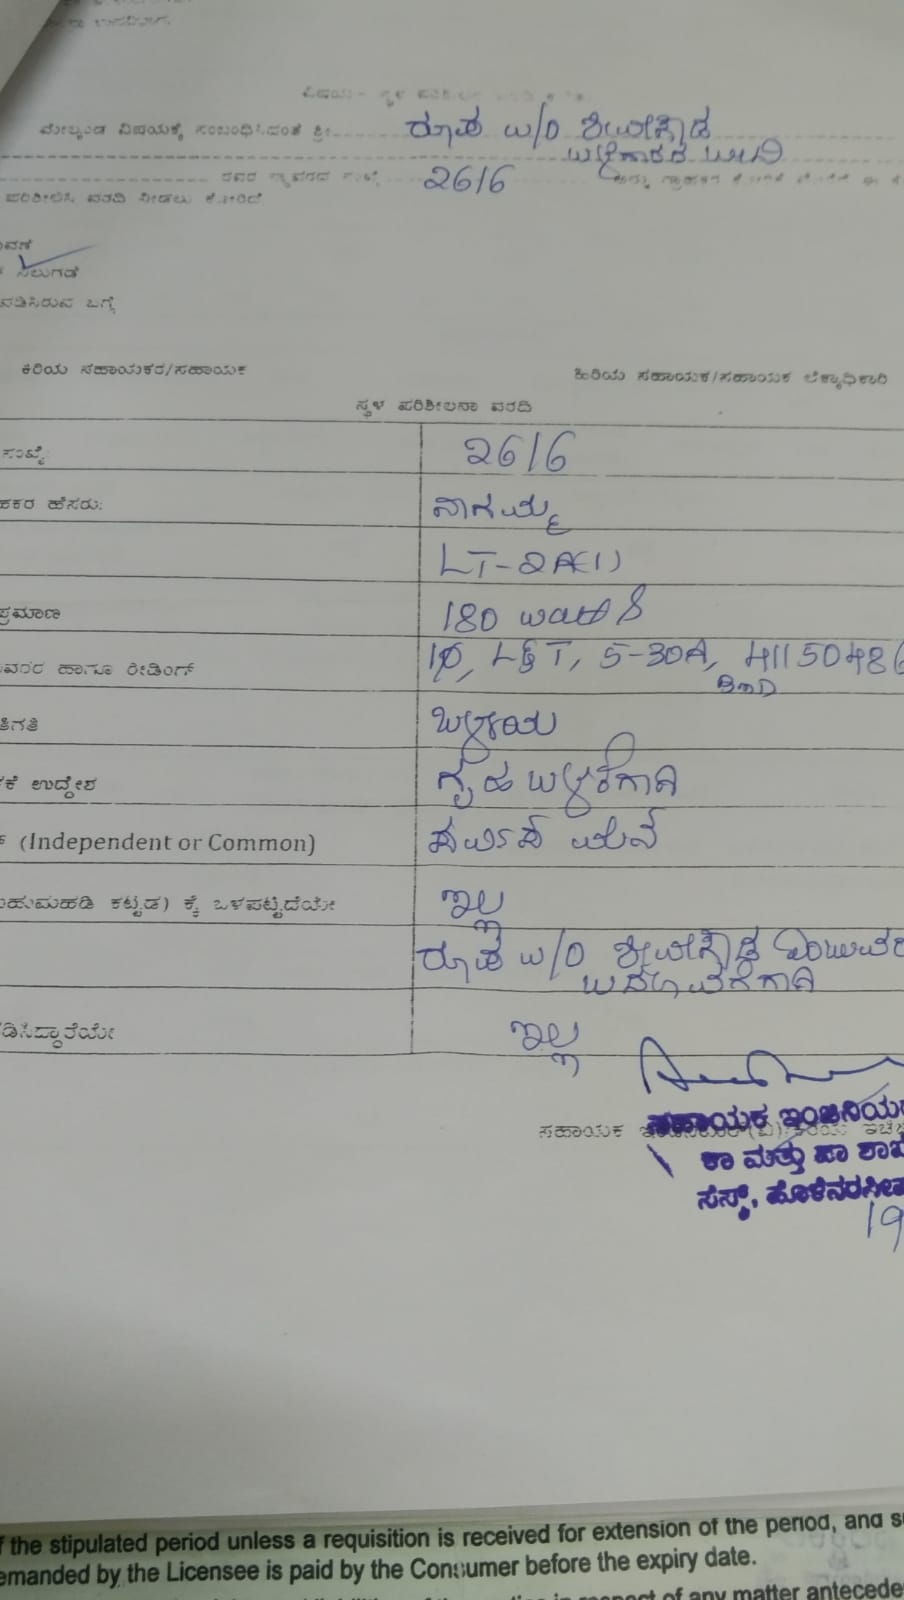 ವಿಷಯ:- ಸ್ಥಳ
ಮೇಲ್ಕಂಡ ವಿಷಯಕ್ಕೆ ಸಂಬಂಧಿಸಿದಂತೆ ಶ್ರೀ ರೂಪ W/O ಶಿವೇಗೌಡ
ಬಳೆಗಾರರ ಬೀದಿ
ರವರ ಸ್ಥಾವರದ ಸಂಖ್ಯೆ 2616
ಪರಿಶೀಲಿಸಿ ವರದಿ ನೀಡಲು ಕೋರಿದೆ
ಾವಣೆ
ಸಲುಗಡೆ
ಪಡಿಸಿರುವ ಬಗ್ಗೆ
ಕಿರಿಯ ಸಹಾಯಕರ/ಸಹಾಯಕ ಹಿರಿಯ ಸಹಾಯಕ/ಸಹಾಯಕ ಲೆಕ್ಕಾಧಿಕಾರಿ
ಸ್ಥಳ ಪರಿಶೀಲನಾ ವರದಿ
ಸಂಖ್ಯೆ: 2616
ಹಕರ ಹೆಸರು: ನಾಗಮ್ಮ
LT-2A(1)
ಪ್ರಮಾಣ 180 watts
ವಿವರ ಹಾಗೂ ರೀಡಿಂಗ್ 1φ, L&T, 5-30A, 4115048
ತಿಗತಿ ಒಳ್ಳೆಯ
ಕೆ ಉದ್ದೇಶ ಗೃಹ ಬಳಕೆಗಾಗಿ
(Independent or Common)
ಬಹುಮಹಡಿ ಕಟ್ಟಡ) ಕ್ಕೆ ಒಳಪಟ್ಟಿದೆಯೇ ಇಲ್ಲ
ರೂಪ W/O ಶಿವೇಗೌಡ
ಬದಲಾವಣೆಗಾಗಿ
ಡಿಸಿದ್ದಾರೆಯೇ ಇಲ್ಲ
ಸಹಾಯಕ
ಸಹಾಯಕ ಇಂಜಿನಿಯರ
ಕಾ ಮತ್ತು ಪಾ ಶಾಖ
ಸೆಸ್ಕ್, ಹೊಳೆನರಸೀಪ
19
f the stipulated period unless a requisition is received for extension of the period, and s
emanded by the Licensee is paid by the Consumer before the expiry date.
in respect of any matter antecede